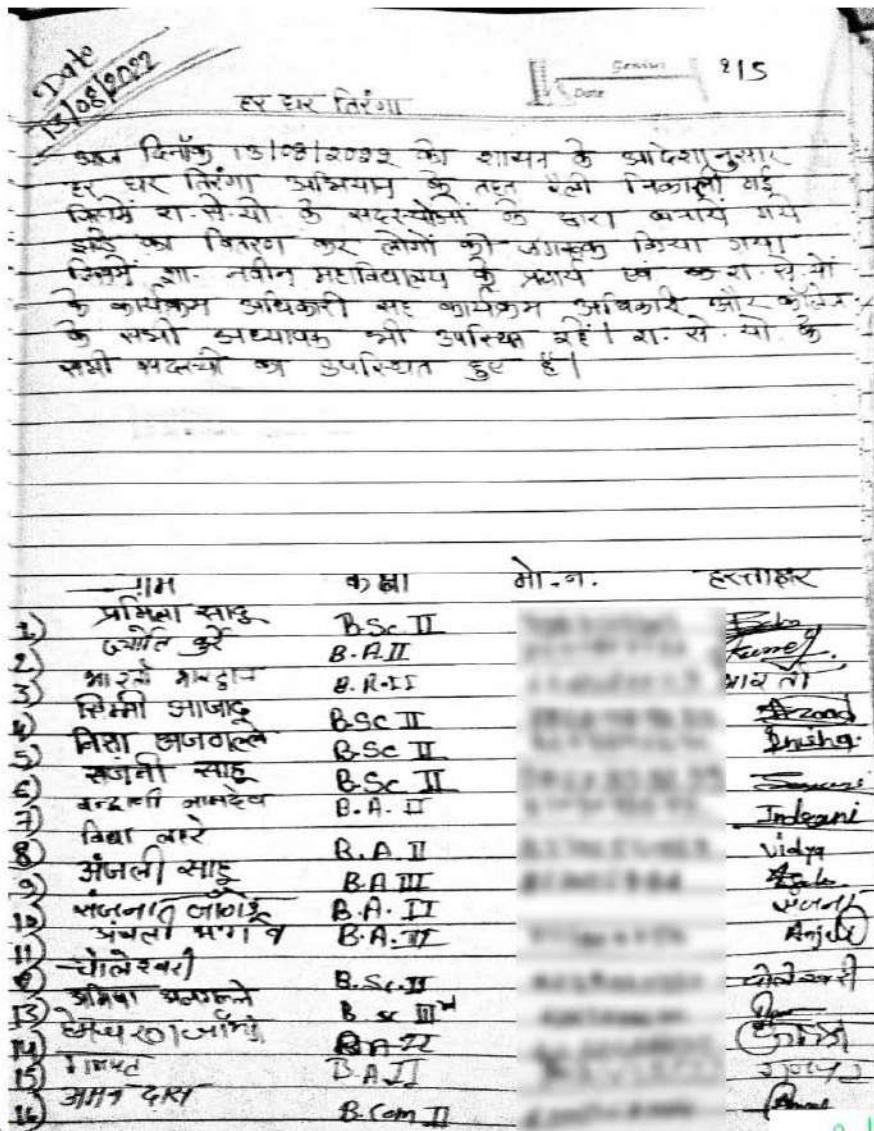 Date
13/08/2022
Genius
Date
215
हर घर तिरंगा
आज दिनाँक 13/08/2022 को शासन के आदेशानुसार
हर घर तिरंगा अभियान के तहत रैली निकाली गई
जिसमें रा.से.यो. के के द्वारा बनायें गये
झंडे का वितरण कर लोगों को जागरूक किया गया
जिसमें शा. नवीन महाविद्यालय के एवं रा.से.यो.
के कार्यक्रम अधिकारी सह कार्यक्रम अधिकारी और कॉलेज
के सभी अध्यापक भी उपस्थित रहें। रा.से.यो. के
सभी सदस्यों का उपस्थित हुए हैं।
नाम कक्षा मो.न. हस्ताक्षर
1) प्रमिला साहू B.Sc II
2) ज्योति कुर्रे B.A.II
3) भारती B.A.II भारती
4) सिम्मी आजाद B.Sc II Azaad
5) निशा अजगल्ले B.Sc II
6) संजनी साहू B.Sc II
7) इन्द्राणी नामदेव B.A. II Indrani
8) विद्या B.A II Vidya
9) अंजली साहू B.A III
10) संजना B.A. II संजना
11) B.A. II Anjali
12) चोलेश्वरी B.Sc.II चोलेश्वरी
13) अजगल्ले B sc III
14)
15) B.A II
16) अमन दास B.Com II